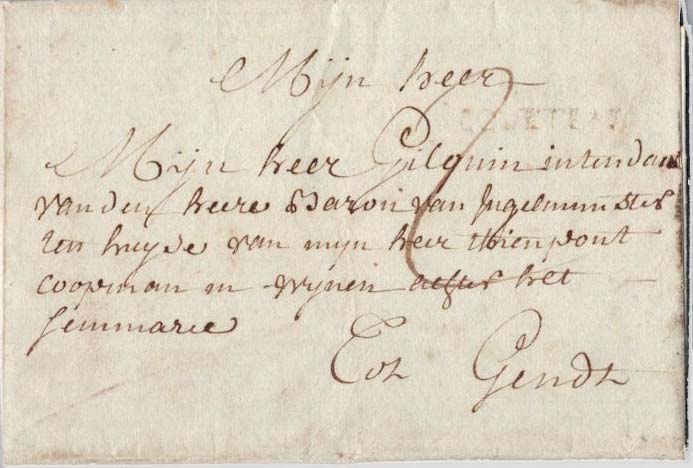 Mijn heer
Mijn heer Gilquin intendant
van den heere Baron van Ingelmunster
ten huyse van mijn heer thienpont
coopman in wijnen achter het
semmarie
Tot Gendt